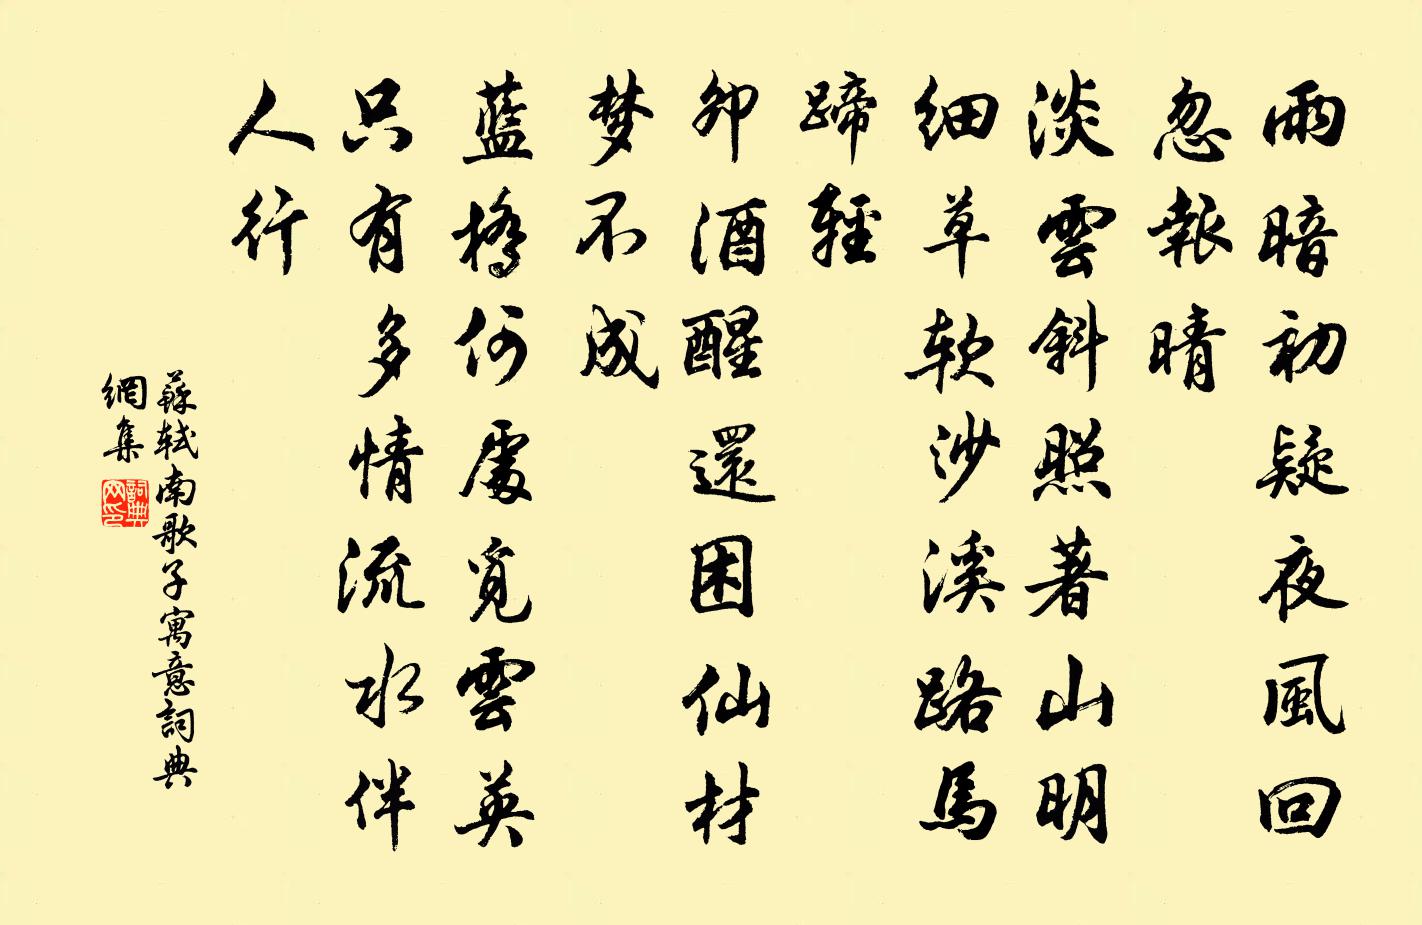 雨暗初疑夜風回
忽報晴
淡雲斜照著山明
細草软沙溪路馬
蹄輕
卯酒醒還困仙材
梦不成
藍橋何處覓雲英
只有多情流水伴
人行
蘇軾南歌子寓意詞典
網集
詞典网印